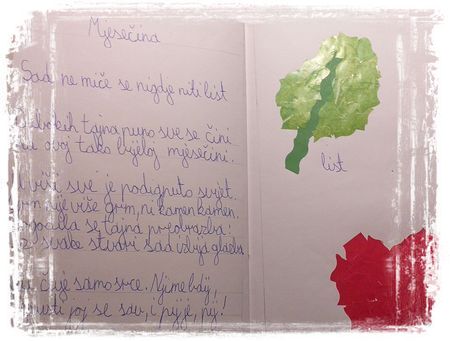 Mjesečina
Sad ne miče se nigdje niti list
tajna puno sve se čini
ovoj tako bijeloj mjesečini.
viši sve je podignuto svijet.
nije više grm, ni kamen kamen.
se tajna preobrazba:
svake stvari sad izbija glazba.
čuje samo srce.
joj se sav, i pij je, pij!
list